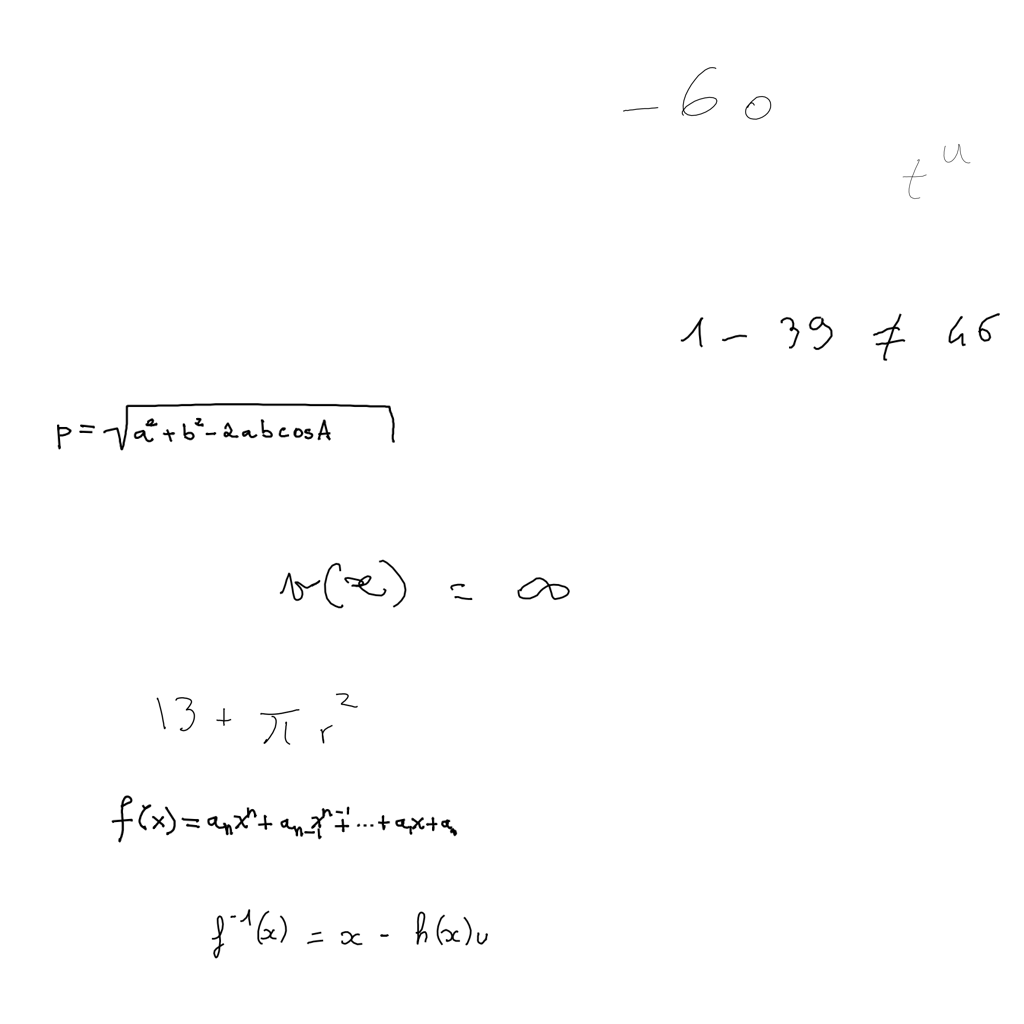 -60
t^u
1 - 39 ≠ 46
p = √(a² + b² - 2abcosA)
v(x) = ∞
13 + πr²
f(x) = aₙxⁿ + aₙ₋₁xⁿ⁻¹ + ... + a₁x + a₀
f⁻¹(x) = x - h(x)u